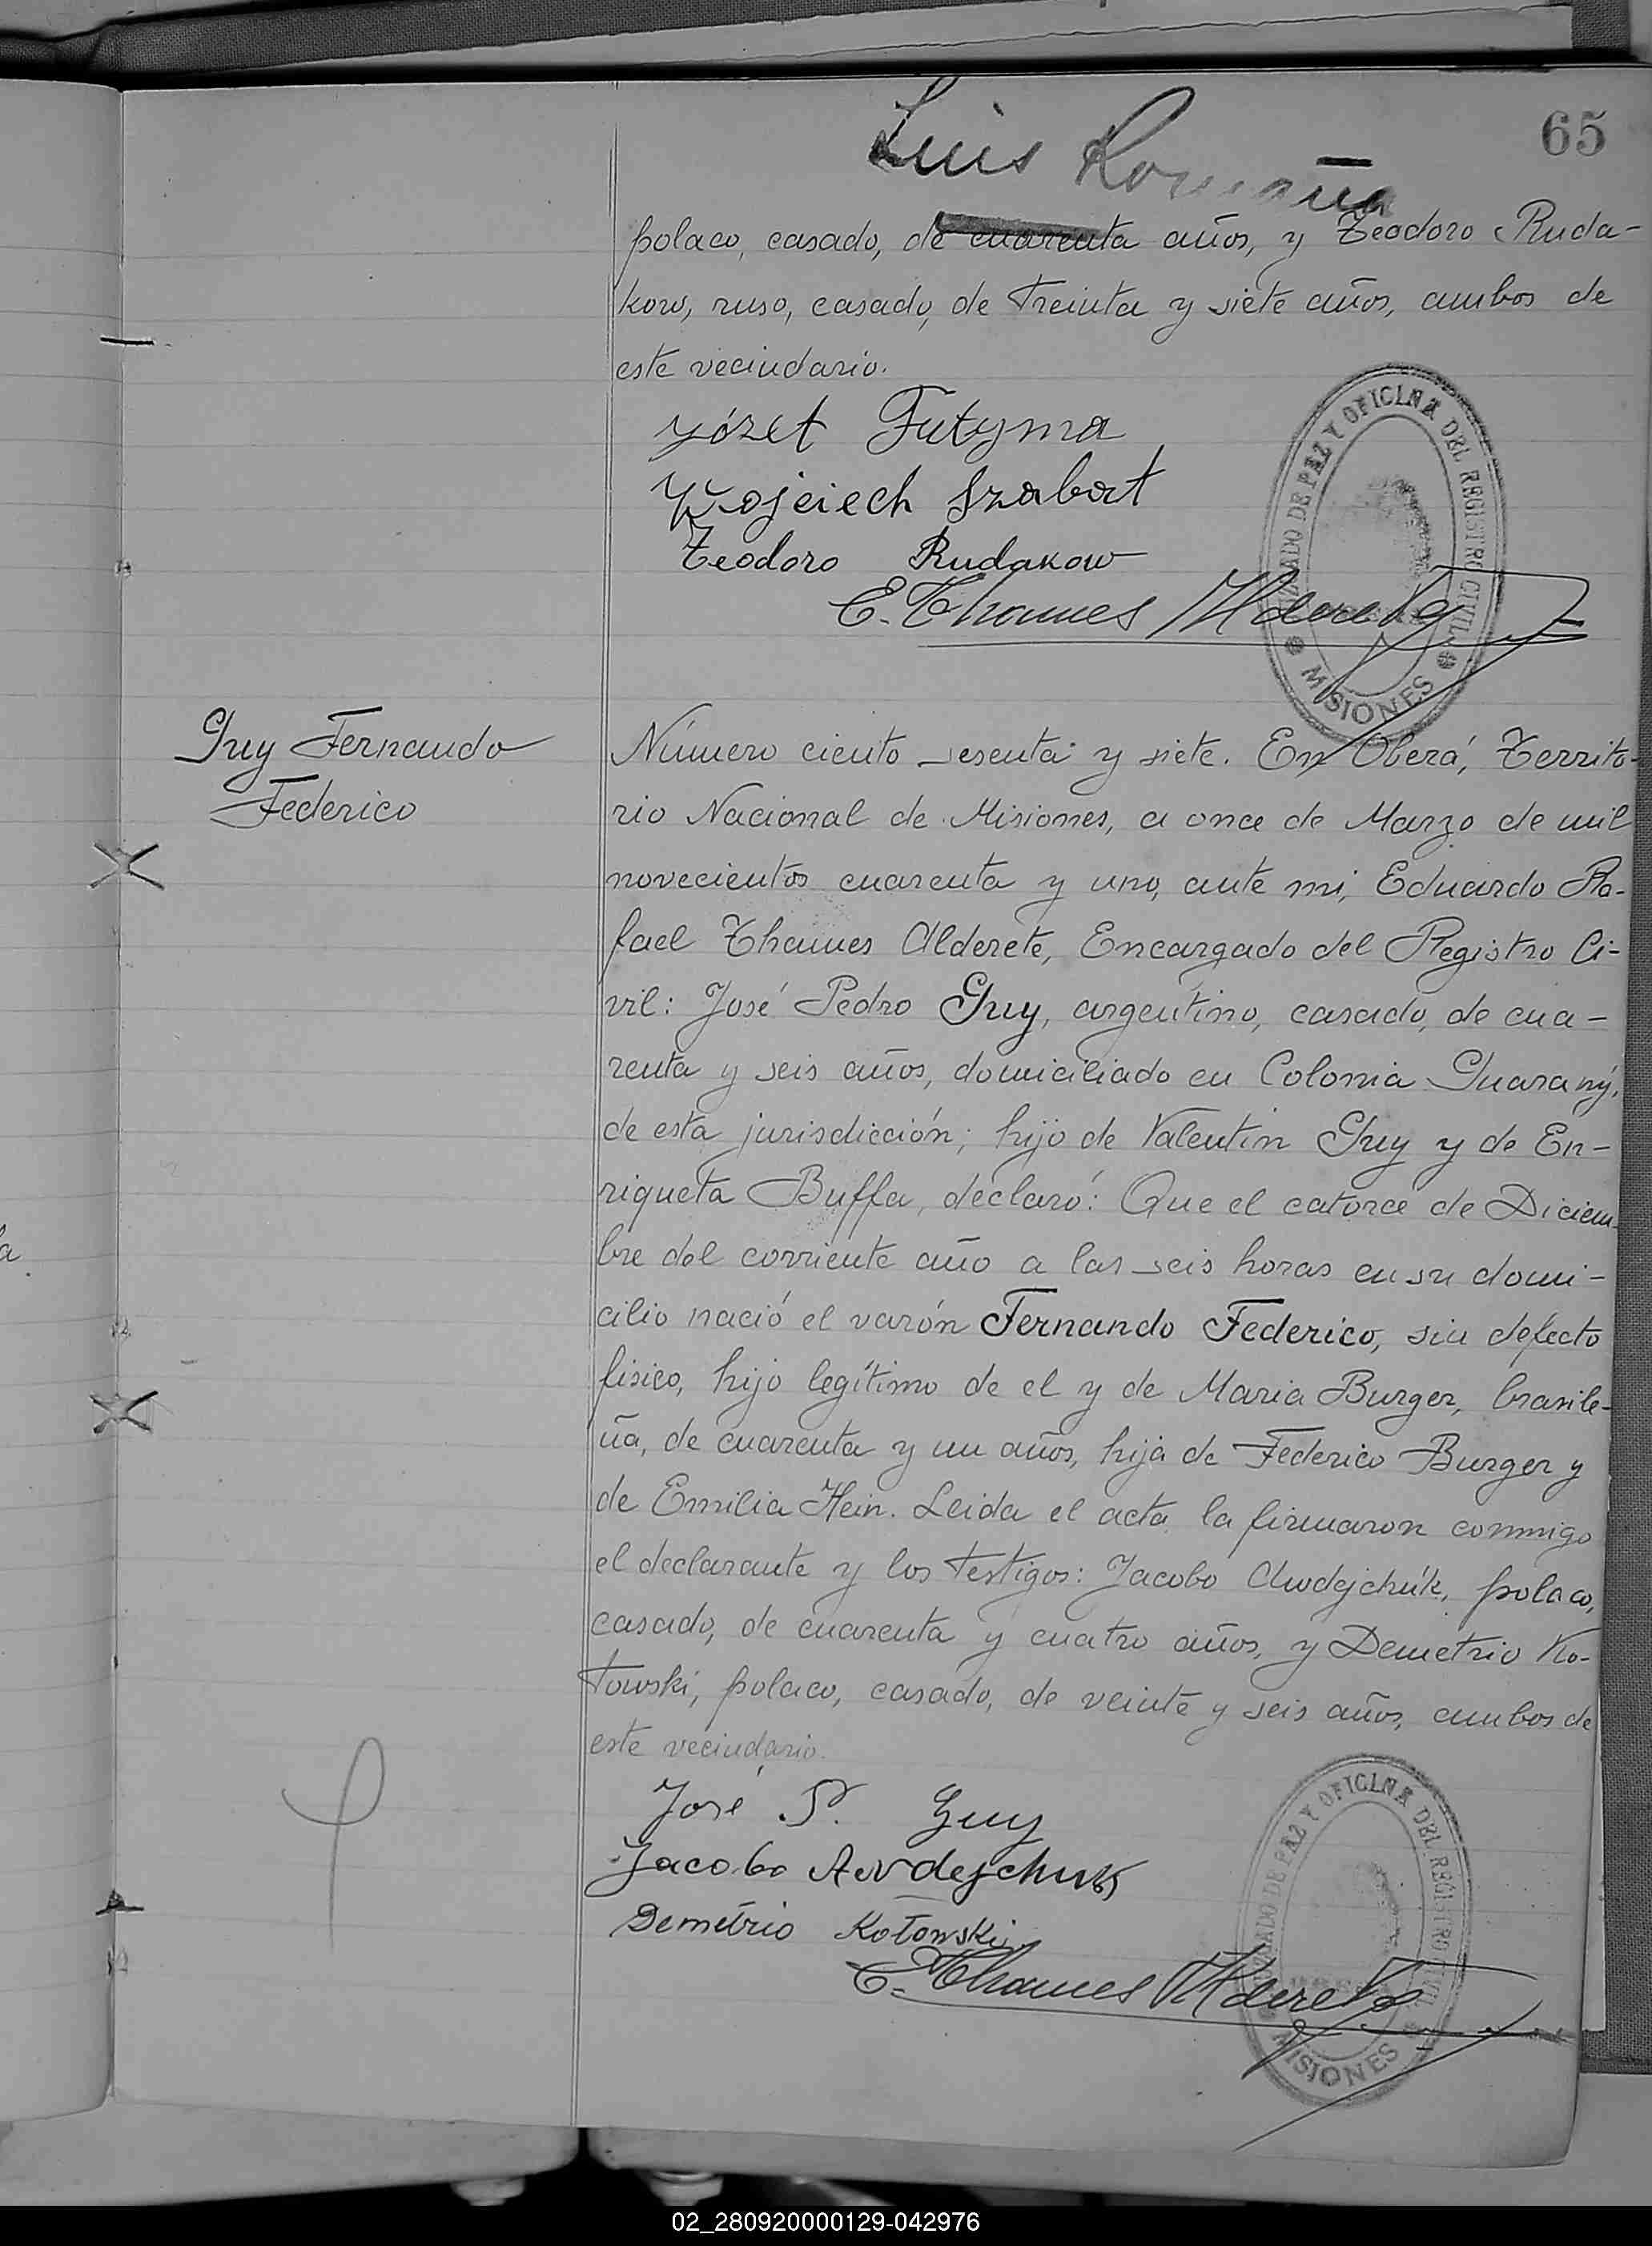 65
Luis
polaco, casado, de cuarenta años, y Teodoro Ruda-
kow, ruso, casado, de treinta y siete años, ambos de
este vecindario.
Józef Futyma
Wojciech Szabat
Teodoro Rudakow
E. Thames Alderete
JUZGADO DE PAZ Y OFICINA DEL REGISTRO CIVIL
MISIONES
Guy Fernando
Federico
Número ciento sesenta y siete. En Oberá, Territo-
rio Nacional de Misiones, a once de Marzo de mil
novecientos cuarenta y uno, ante mi, Eduardo Ra-
fael Thames Alderete, Encargado del Registro Ci-
vil: José Pedro Guy, argentino, casado, de cua-
renta y seis años, domiciliado en Colonia Guarany,
de esta jurisdicción; hijo de Valentin Guy y de En-
riqueta Buffa, declaró: Que el catorce de Diciem-
bre del corriente año a las seis horas en su domi-
cilio nació el varón Fernando Federico, sin defecto
fisico, hijo legítimo de el y de Maria Burger, brasile-
ña, de cuarenta y un años, hija de Federico Burger y
de Emilia Hein. Leida el acta la firmaron conmigo
el declarante y los testigos: Jacobo polaco,
casado, de cuarenta y cuatro años, y Demetrio Ko-
towski, polaco, casado, de veinte y seis años, ambos de
este vecindario.
José P. Guy
Jacobo
Demetrio Kotowski
E. Thames Alderete
JUZGADO DE PAZ Y OFICINA DEL REGISTRO CIVIL
MISIONES
02_280920000129-042976